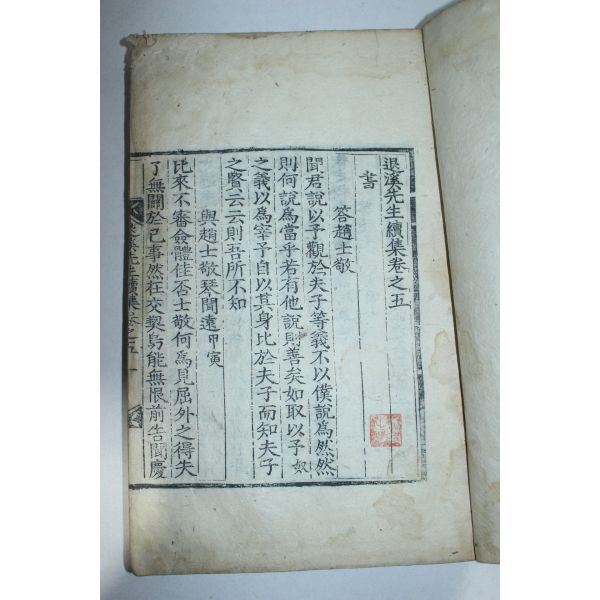 退溪先生續集卷之五
書
答趙士敬
聞君說以予觀於夫子等義不以僕說爲然然
則何說爲當乎若有他說則善矣如取以予奴
之義以爲宰予自以其身比於夫子而知夫子
之賢云云則吾所不知
與趙士敬琴聞遠甲寅
比來不審僉體佳否士敬何爲見屈外之得失
了無關於己事然在交契烏能無恨前告聞慶
溪先生續集卷之五 一